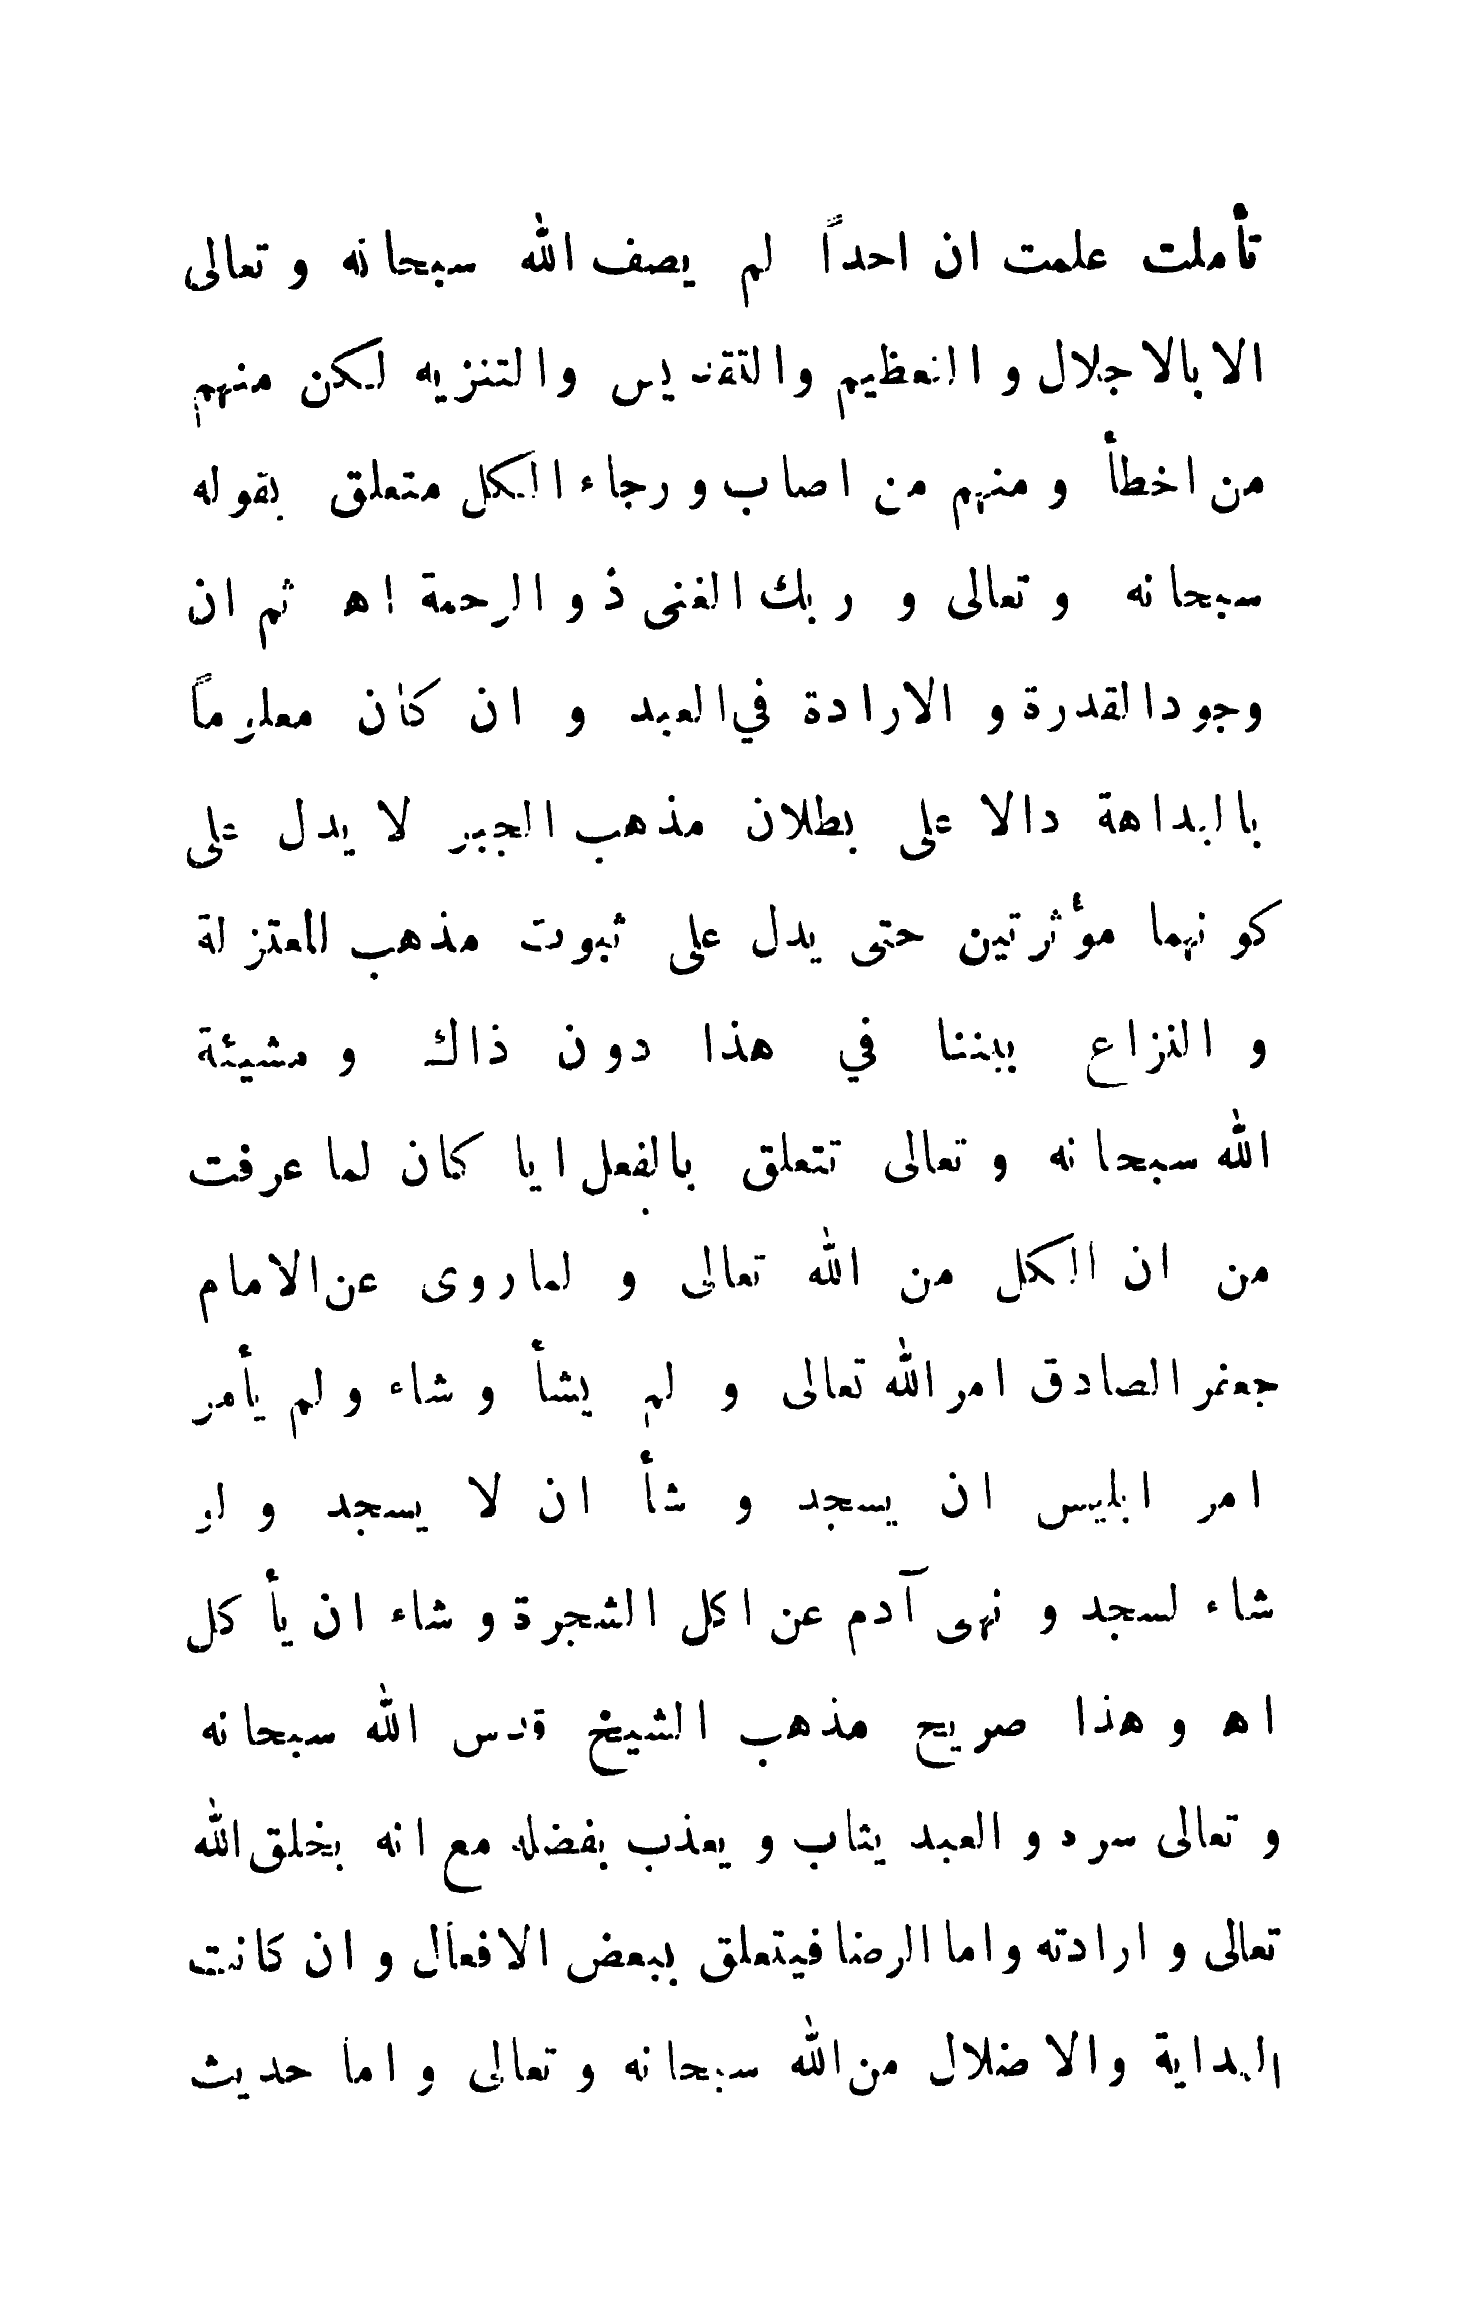 تأملت علمت ان احداً لم يصف الله سبحانه و تعالى
الا بالاجلال و التعظيم والتقديس والتنزيه لكن منهم
من اخطأ و منهم من اصاب و رجاء الكل متعلق بقوله
سبحانه و تعالى و ربك الغنى ذو الرحمة اه ثم ان
وجود القدرة و الارادة في العبد و ان كان معلوماً
بالبداهة دالا على بطلان مذهب الجبر لا يدل على
كونهما مؤثرتين حتى يدل على ثبوت مذهب المعتزلة
و النزاع بيننا في هذا دون ذاك و مشيئة
الله سبحانه و تعالى تتعلق بالفعل ايا كان لما عرفت
من ان الكل من الله تعالى و لما روى عن الامام
جعفر الصادق امر الله تعالى و لم يشأ و شاء و لم يأمر
امر ابليس ان يسجد و شأ ان لا يسجد و لو
شاء لسجد و نهى آدم عن اكل الشجرة و شاء ان يأكل
اه و هذا صريح مذهب الشيخ قدس الله سبحانه
و تعالى سره و العبد يثاب و يعذب بفضله مع انه بخلق الله
تعالى و ارادته و اما الرضا فيتعلق ببعض الافعال و ان كانت
الهداية والاضلال من الله سبحانه و تعالى و اما حديث